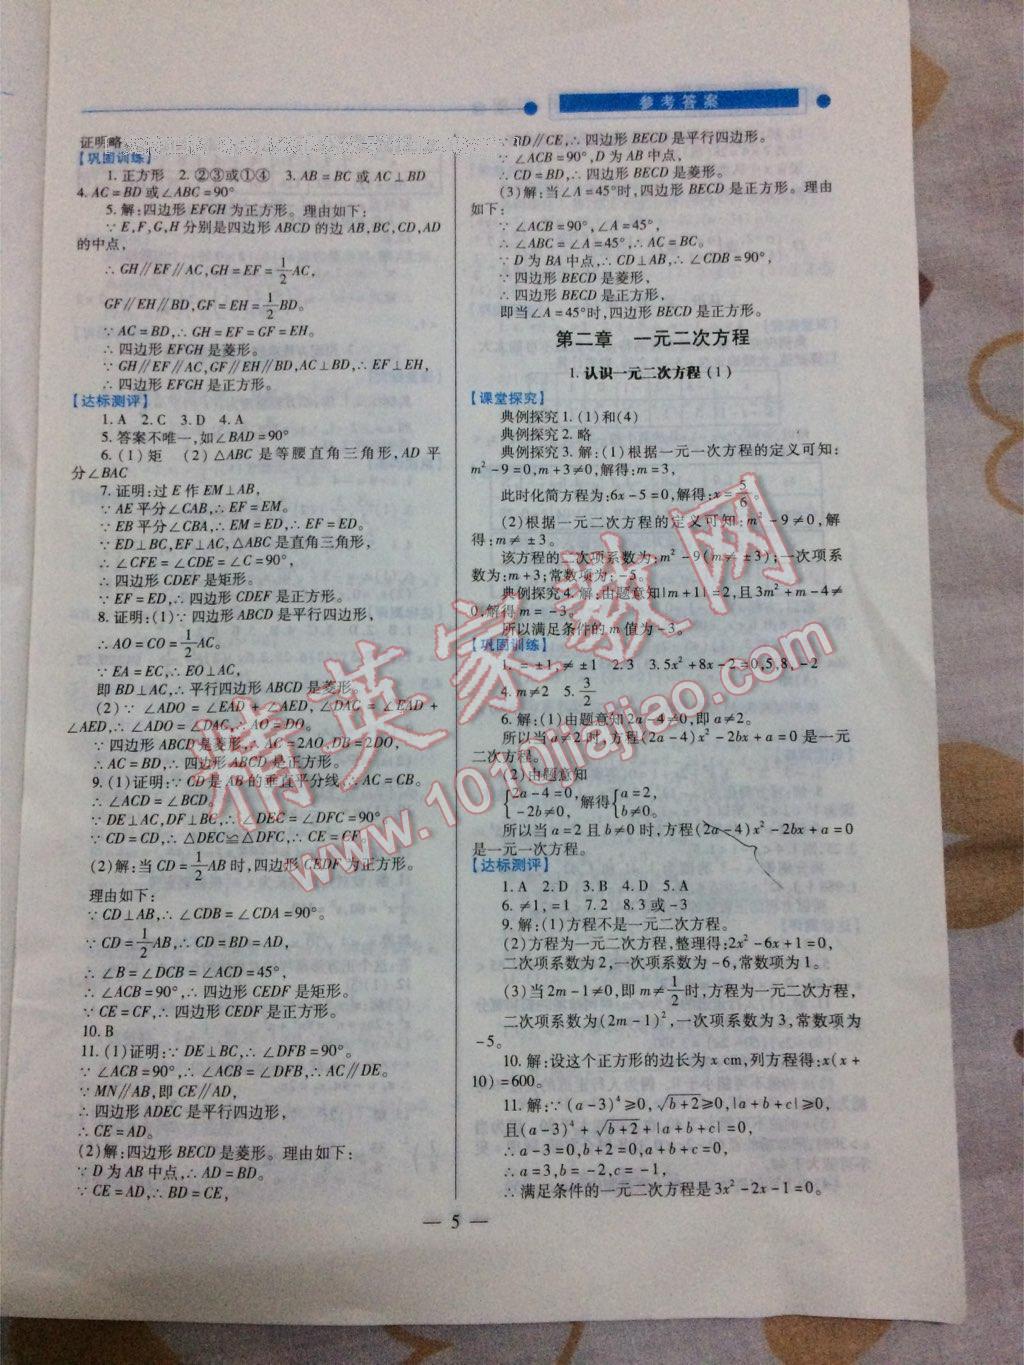 参考答案
证明略
【巩固训练】
1. 正方形 2. ②③或①④ 3. AB=BC 或 AC⊥BD
4. AC=BD 或∠ABC=90°
5. 解:四边形 EFGH 为正方形。理由如下:
∵E,F,G,H 分别是四边形 ABCD 的边 AB,BC,CD,AD
的中点,
∴GH∥EF∥AC,GH=EF=1/2AC,
GF∥EH∥BD,GF=EH=1/2BD。
∵AC=BD,∴GH=EF=GF=EH。
∴四边形 EFGH 是菱形。
∵GH∥EF∥AC,GF∥EH∥BD,AC⊥BD,∴EF⊥EH,
∴四边形 EFGH 是正方形。
【达标测评】
1. A 2. C 3. D 4. A
5. 答案不唯一,如∠BAD=90°
6. (1)矩 (2)△ABC 是等腰直角三角形,AD 平
分∠BAC
7. 证明:过 E 作 EM⊥AB,
∵AE 平分∠CAB,∴EF=EM。
∵EB 平分∠CBA,∴EM=ED,∴EF=ED。
∵ED⊥BC,EF⊥AC,△ABC 是直角三角形,
∴∠CFE=∠CDE=∠C=90°,
∴四边形 CDEF 是矩形。
∵EF=ED,∴四边形 CDEF 是正方形。
8. 证明:(1)∵四边形 ABCD 是平行四边形,
∴AO=CO=1/2AC。
∵EA=EC,∴EO⊥AC,
即 BD⊥AC,∴平行四边形 ABCD 是菱形。
(2)∵∠ADO=∠EAD+∠AED,∠DAC=∠EAD+
∠AED,∴∠ADO=∠DAC,∴AO=DO。
∵四边形 ABCD 是菱形,∴AC=2AO,DB=2DO,
∴AC=BD,∴四边形 ABCD 是正方形。
9. (1)证明:∵CD 是 AB 的垂直平分线,∴AC=CB。
∴∠ACD=∠BCD。
∵DE⊥AC,DF⊥BC,∴∠DEC=∠DFC=90°。
∵CD=CD,∴△DEC≌△DFC,∴CE=CF。
(2)解:当 CD=1/2AB 时,四边形 CEDF 为正方形。
理由如下:
∵CD⊥AB,∴∠CDB=∠CDA=90°。
∵CD=1/2AB,∴CD=BD=AD,
∴∠B=∠DCB=∠ACD=45°,
∴∠ACB=90°,∴四边形 CEDF 是矩形。
∵CE=CF,∴四边形 CEDF 是正方形。
10. B
11. (1)证明:∵DE⊥BC,∴∠DFB=90°。
∵∠ACB=90°,∴∠ACB=∠DFB,∴AC∥DE。
∵MN∥AB,即 CE∥AD,
∴四边形 ADEC 是平行四边形,
∴CE=AD。
(2)解:四边形 BECD 是菱形。理由如下:
∵D 为 AB 中点,∴AD=BD。
∵CE=AD,∴BD=CE,
∵BD∥CE,∴四边形 BECD 是平行四边形。
∵∠ACB=90°,D 为 AB 中点,
∴CD=BD,∴四边形 BECD 是菱形。
(3)解:当∠A=45°时,四边形 BECD 是正方形。理由
如下:
∵∠ACB=90°,∠A=45°,
∴∠ABC=∠A=45°,∴AC=BC。
∵D 为 BA 中点,∴CD⊥AB,∴∠CDB=90°,
∵四边形 BECD 是菱形,
∴四边形 BECD 是正方形,
即当∠A=45°时,四边形 BECD 是正方形。
第二章 一元二次方程
1. 认识一元二次方程(1)
【课堂探究】
典例探究 1. (1)和(4)
典例探究 2. 略
典例探究 3. 解:(1)根据一元一次方程的定义可知:
m²-9=0,m+3≠0,解得:m=3,
此时化简方程为:6x-5=0,解得:x=5/6。
(2)根据一元二次方程的定义可知:m²-9≠0,解
得:m≠±3。
该方程的二次项系数为:m²-9(m≠±3);一次项系
数为:m+3;常数项为:-5。
典例探究 4. 解:由题意知|m+1|=2,且3m²+m-4≠
0,解得 m=-3。
所以满足条件的 m 值为-3。
【巩固训练】
1. =±1,≠±1 2. 3 3. 5x²+8x-2=0,5,8,-2
4. m≠2 5. 3/2
6. 解:(1)由题意知2a-4≠0,即 a≠2。
所以当 a≠2 时,方程(2a-4)x²-2bx+a=0 是一元
二次方程。
(2)由题意知
{2a-4=0, -2b≠0, 解得{a=2, b≠0。
所以当 a=2 且 b≠0 时,方程(2a-4)x²-2bx+a=0
是一元一次方程。
【达标测评】
1. A 2. D 3. B 4. D 5. A
6. ≠1,=1 7. 2 8. 3 或-3
9. 解:(1)方程不是一元二次方程。
(2)方程为一元二次方程,整理得:2x²-6x+1=0,
二次项系数为 2,一次项系数为-6,常数项为 1。
(3)当2m-1≠0,即 m≠1/2时,方程为一元二次方程,
二次项系数为(2m-1)²,一次项系数为 3,常数项为
-5。
10. 解:设这个正方形的边长为 x cm,列方程得:x(x+
10)=600。
11. 解:∵(a-3)⁴≥0,√(b+2)≥0,|a+b+c|≥0,
且(a-3)⁴+√(b+2)+|a+b+c|=0,
∴a-3=0,b+2=0,a+b+c=0,
∴a=3,b=-2,c=-1,
∴满足条件的一元二次方程是3x²-2x-1=0。
— 5 —
精英家教网
www.1010jiajiao.com